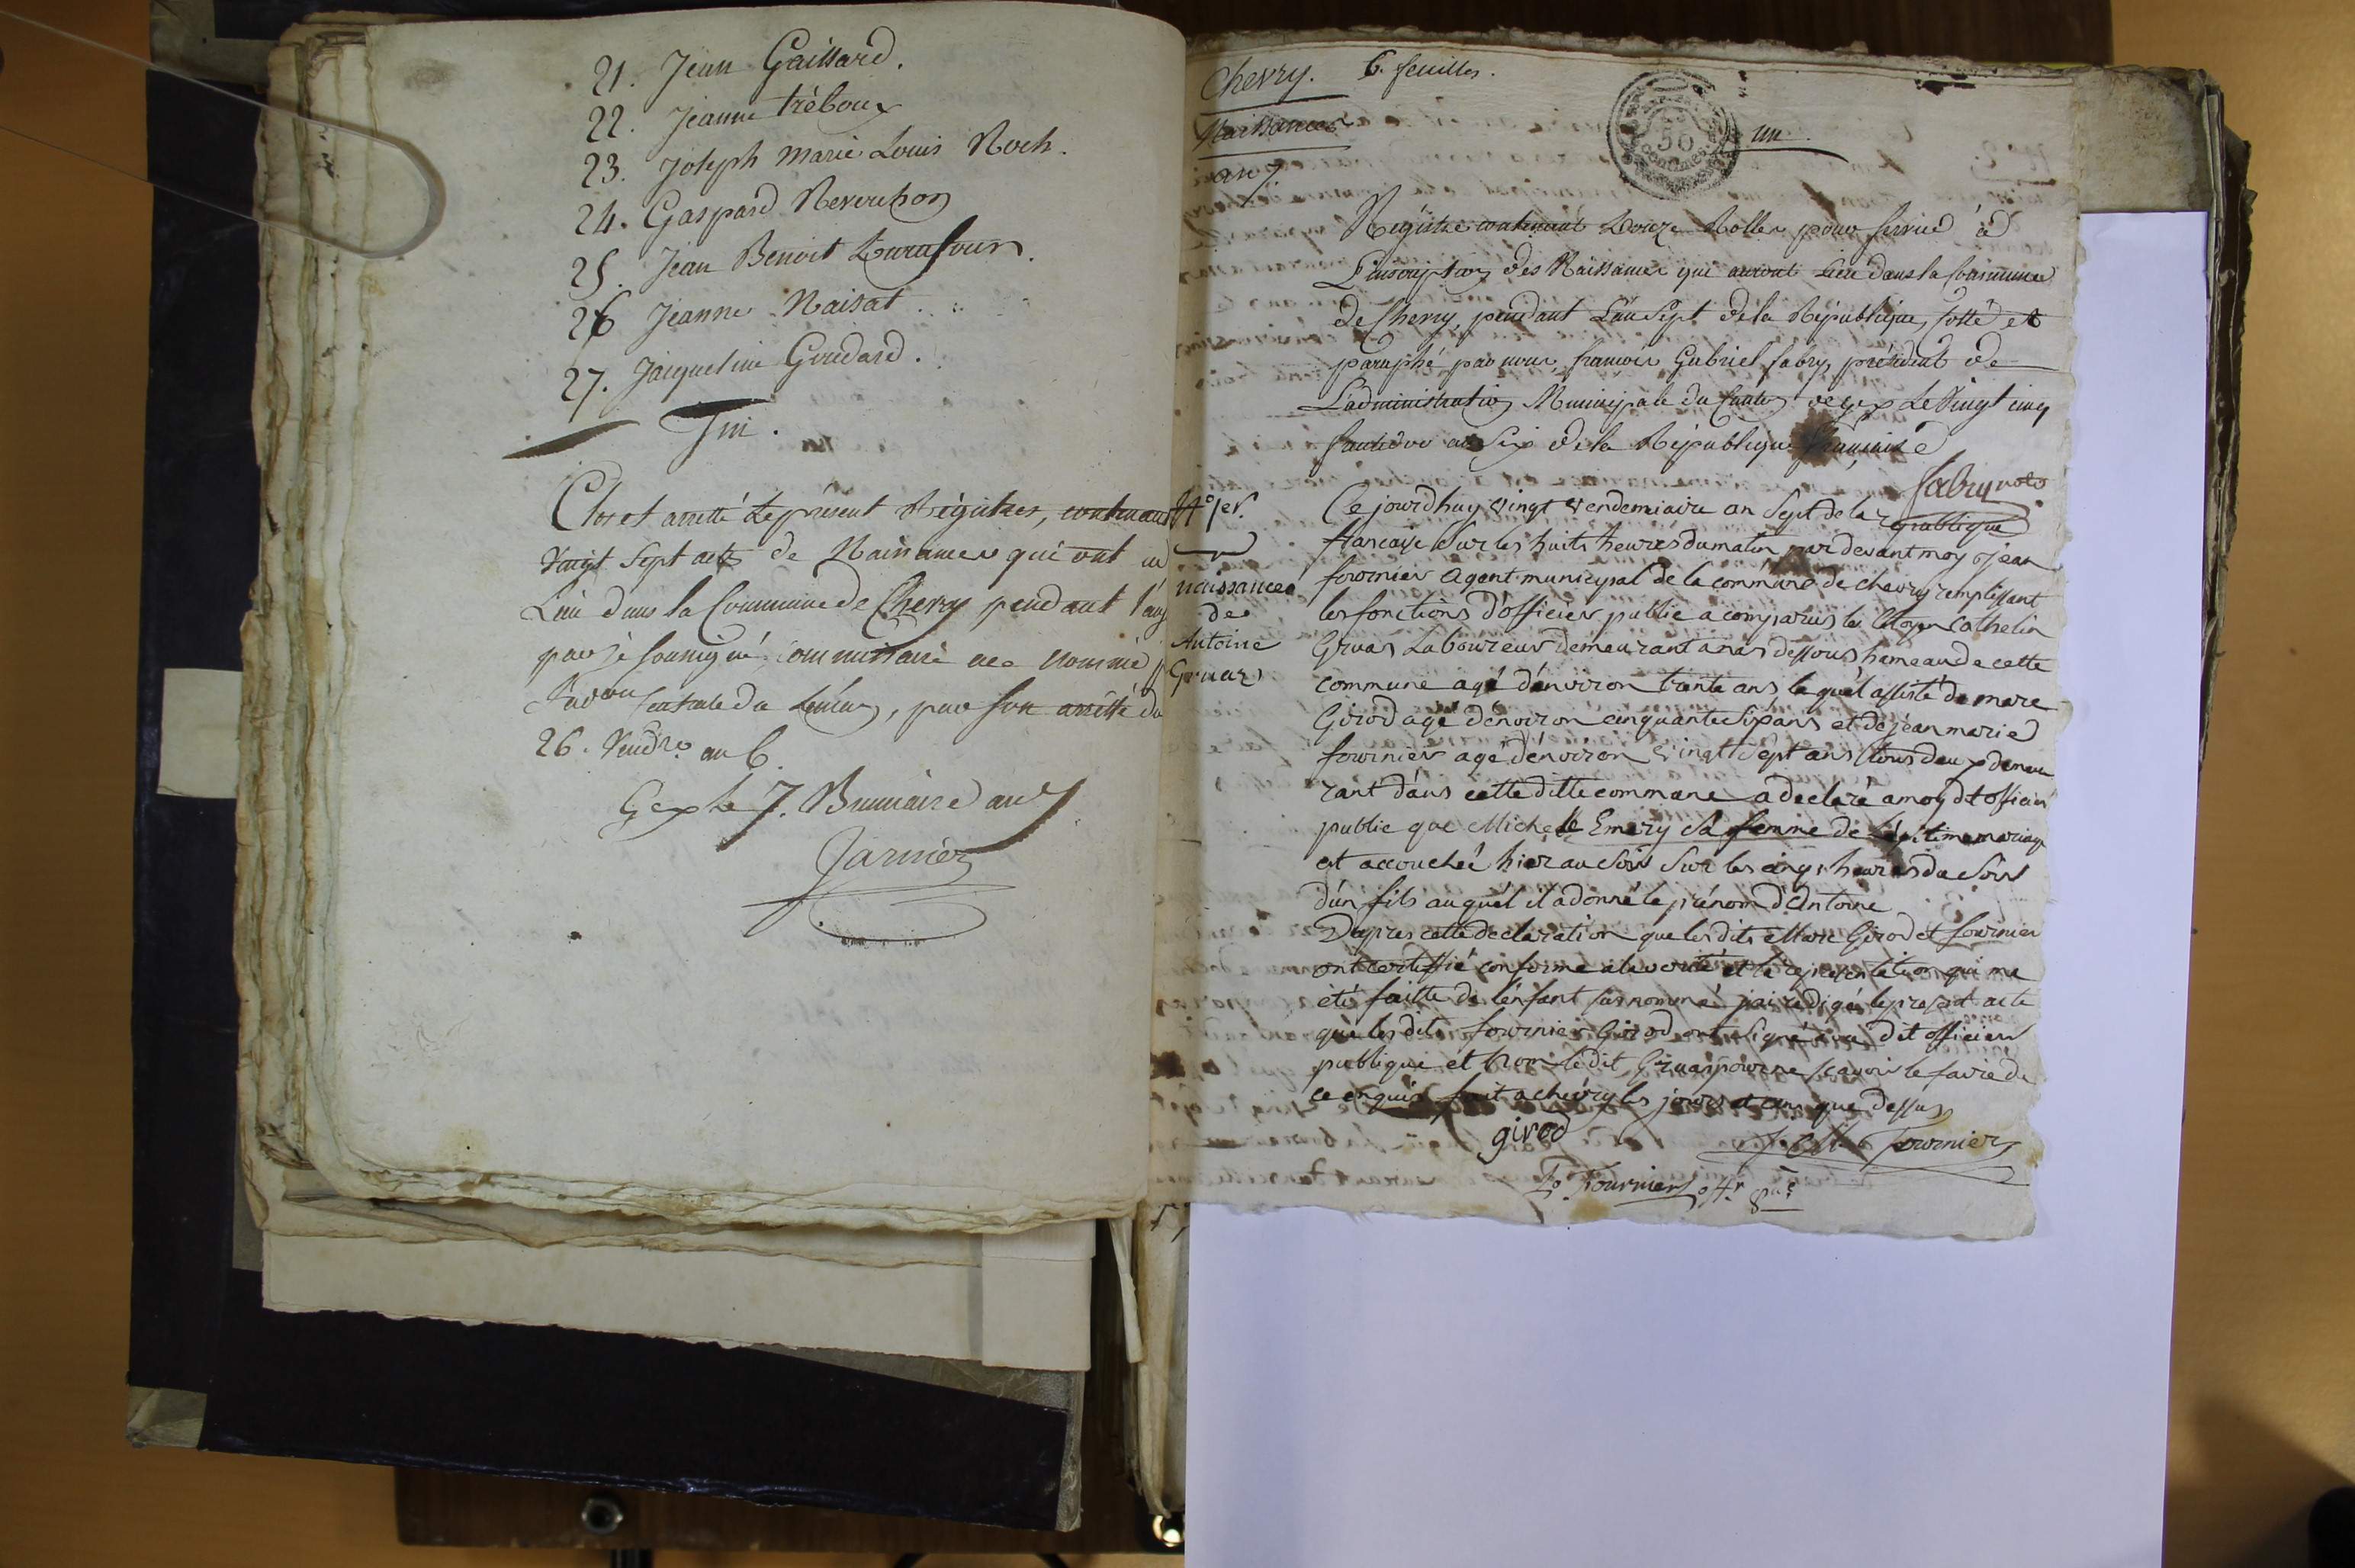 21. Jean Gaillard.
22. Jeanne tréboux
23. Joseph Marie Louis Roch.
24. Gaspard Reverchon
25. Jean Benoit
26 Jeanne Naisat
27. Jacqueline Goudard.
Fin.
Clos et arretté le présent Régistres, contenant
vingt sept acts de Naissances qui ont eu
Lieu dans la Commune de Chevry pendant l'an 6
par je soussigné, commissaire nommé
centrale du Léman, par son arrêté du
26. Vendre. an 6.
Gex le 7. Brumaire an 7
Jarnier
Chevry. 6. feuilles.
Naissances
an 7
50
centimes
un
Régistre contenant Douze Rolles pour servir à
L'inscription des Naissances qui auront Lieu dans la Commune
de Chevry, pendant L'an Sept de la République, cotté et
paraphé par nous, françois Gabriel fabry, président de
L'administration Municipale du Canton de gex Le Vingt cinq
fructidor an Six de la République française
fabry
N°. 1er.
naissances
de
Antoine
Gruaz
Ce jourdhuy vingt vendemiaire an Sept de la republique
francaise Sur les huits heures du matin par devant moy jean
fournier agent municypal de la commune de chevry remplissant
les fonctions d'officier public a comparus le Citoyen Cathelin
Gruas Laboureur demeurant a nas dessous hameau de cette
commune agé d'environ trante ans le quél assisté de marc
Girod agé d'énviron cinquante Six ans et de jean marie
fournier agé d'énviron vingt Sept ans tous deux demeu
rant dans cette ditte commune a declaré a moy dt officier
public que Michelle Emery Sa femme de Légitime mariage
est accouchée hier au Soir Sur les cinq heures du Soir
d'un fils au quél il a donné le prénom d'Antoine
D'apres cette declaration que les dits Marc Girod et fournier
ont certiffié conforme a la verité et la representation qui ma
été faitte de l'énfant sus nommé j'ai redigé le present acte
que les dits fournier Girod ont signé avec dit officier
publique et non le dit Gruas pour ne scavoir le faire de
ce enquis fait a chévry les jours et an que dessus
girod
J M Fournier
Fournier offr. puc